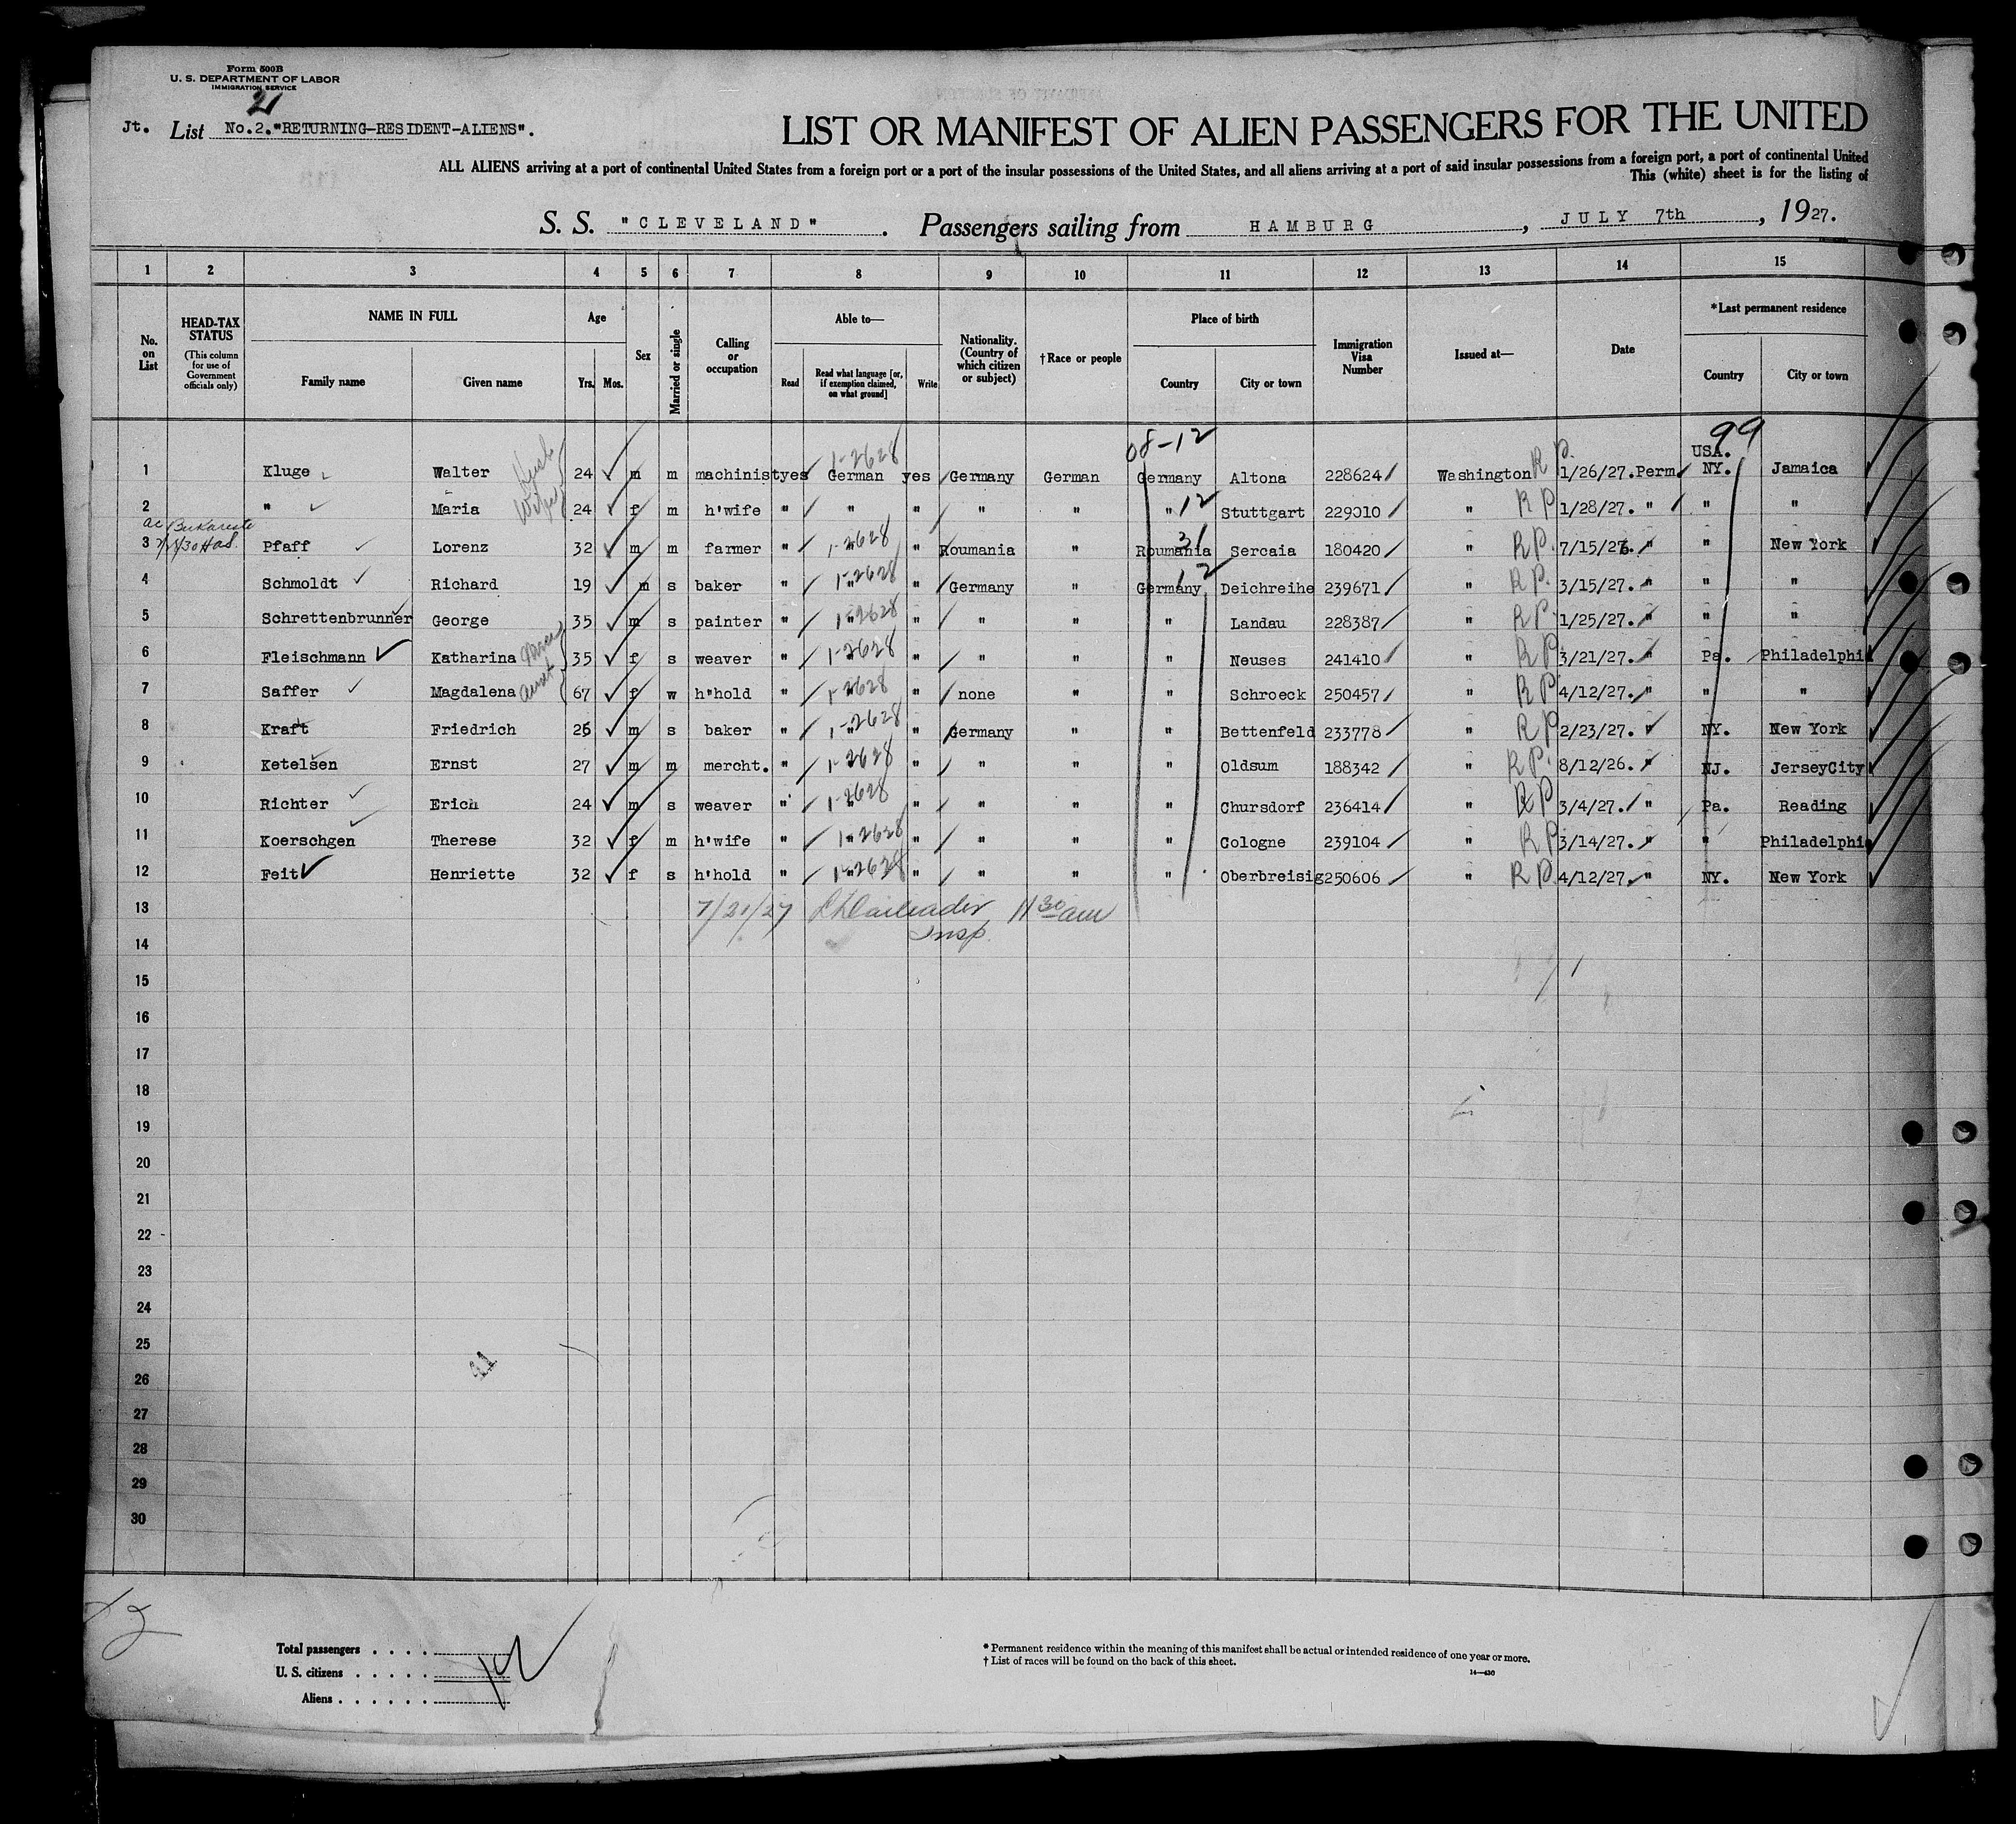 Form 500B
U. S. DEPARTMENT OF LABOR
IMMIGRATION SERVICE
2
Jt. List No.2."RETURNING-RESIDENT-ALIENS".
LIST OR MANIFEST OF ALIEN PASSENGERS FOR THE UNITED
ALL ALIENS arriving at a port of continental United States from a foreign port or a port of the insular possessions of the United States, and all aliens arriving at a port of said insular possessions from a foreign port, a port of continental United
This (white) sheet is for the listing of
S. S. "CLEVELAND". Passengers sailing from HAMBURG, JULY 7th, 1927.
1 2 3 4 5 6 7 8 9 10 11 12 13 14 15
No. on List
HEAD-TAX STATUS (This column for use of Government officials only)
NAME IN FULL
Family name
Given name
Age
Yrs. Mos.
Sex
Married or single
Calling or occupation
Able to—
Read
Read what language [or, if exemption claimed, on what ground]
Write
Nationality. (Country of which citizen or subject)
†Race or people
Place of birth
Country
City or town
Immigration Visa Number
Issued at—
Date
*Last permanent residence
Country
City or town
08-12 99
1-2628 USA.
1 Kluge Walter 24 m m machinist yes German yes Germany German Germany Altona 228624 Washington R P. 1/26/27. Perm NY. Jamaica
2 " Maria Wife 24 f m h'wife " " " " " " 12 Stuttgart 229010 " R P 1/28/27. " " "
3 Pfaff Lorenz 32 m m farmer " 1-2628 " " Roumania " Roumania 31 Sercaia 180420 " R P. 7/15/26. " " New York
4 Schmoldt Richard 19 m s baker " 1-2628 " " Germany " Germany 12 Deichreihe 239671 " R P. 3/15/27. " " "
5 Schrettenbrunner George 35 m s painter " 1-2628 " " " " " Landau 228387 " R P. 1/25/27. " " "
6 Fleischmann Katharina 35 f s weaver " 1-2628 " " " " " Neuses 241410 " R P 3/21/27. " Pa. Philadelphia
7 Saffer Magdalena aunt 67 f w h'hold " 1-2628 " " none " " Schroeck 250457 " R P 4/12/27. " " "
8 Kraft Friedrich 26 m s baker " 1-2628 " " Germany " " Bettenfeld 233778 " R P 2/23/27. " NY. New York
9 Ketelsen Ernst 27 m m mercht. " 1-2628 " " " " " Oldsum 188342 " R P. 8/12/26. " NJ. JerseyCity
10 Richter Erich 24 m s weaver " 1-2628 " " " " " Chursdorf 236414 " R P 3/4/27. " Pa. Reading
11 Koerschgen Therese 32 f m h'wife " 1-2628 " " " " " Cologne 239104 " R P 3/14/27. " " Philadelphia
12 Feit Henriette 32 f s h'hold " 1-2628 " " " " " Oberbreisig 250606 " R P. 4/12/27. " NY. New York
13 7/21/27 11 30 am
14 Insp.
15
16
17
18
19
20
21
22
23
24
25
26
27
28
29
30
Total passengers
U. S. citizens
Aliens
12
* Permanent residence within the meaning of this manifest shall be actual or intended residence of one year or more.
† List of races will be found on the back of this sheet.
14—430